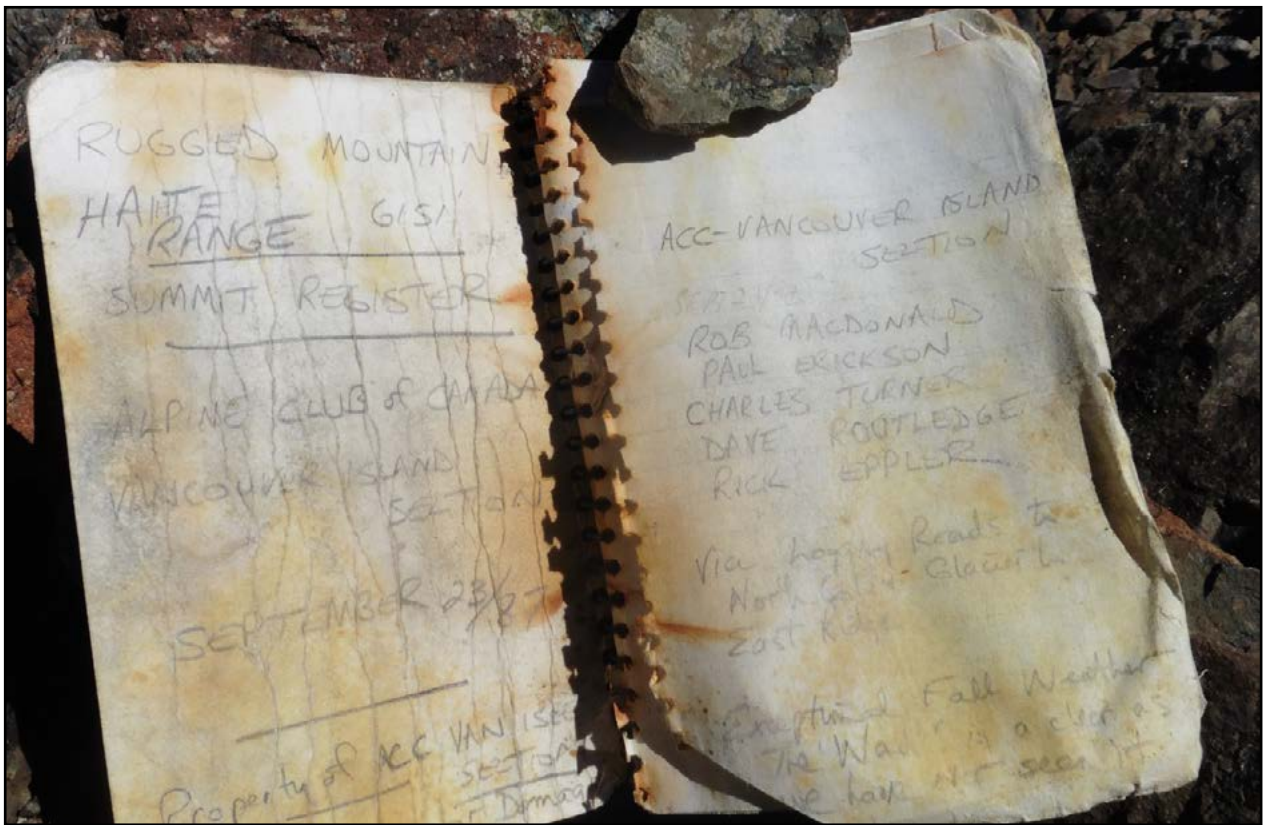 RUGGED MOUNTAIN
HAIHTE
RANGE 6151'
SUMMIT REGISTER
ALPINE CLUB of CANADA
VANCOUVER ISLAND
SECTION
SEPTEMBER 23/
Property of ACC VAN ISLE
SECTION
ACC-VANCOUVER ISLAND
SECTION
ROB MACDONALD
PAUL ERICKSON
CHARLES TURNER
DAVE ROUTLEDGE
RICK EPPLER
Via Logging Roads to
North Glacier
East Ridge
Exceptional Fall Weather
The is a clear as
we have not seen it